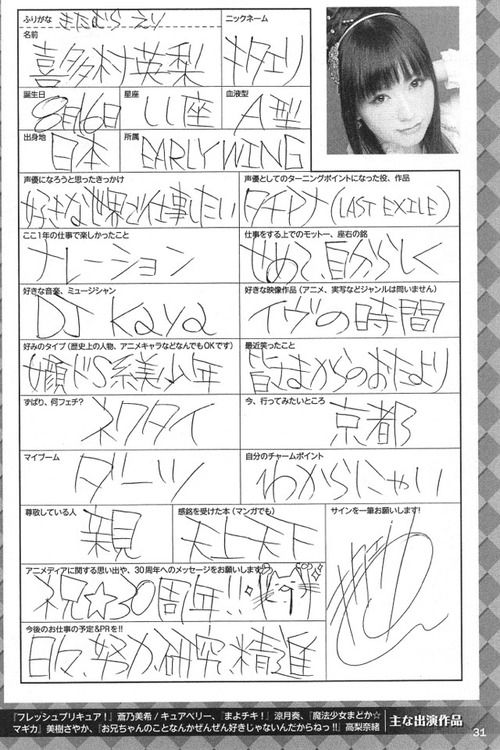 ふりがな きたむら えり
ニックネーム
名前
喜多村英梨
キタエリ
誕生日 星座 血液型
8月16日 しし座 A型
出身地 所属
日本 EARLY WING
声優になろうと思ったきっかけ
好きな世界で仕事したい
声優としてのターニングポイントになった役、作品
タチアナ(LAST EXILE)
ここ1年の仕事で楽しかったこと
ナレーション
仕事をする上でのモットー、座右の銘
せめて、自分らしく
好きな音楽、ミュージシャン
DJ Kaya
好きな映像作品(アニメ、実写などジャンルは問いません)
イヴの時間
好みのタイプ(歴史上の人物、アニメキャラなどなんでもOKです)
ドS系美少年
最近笑ったこと
皆さまからのおたより
ずばり、何フェチ?
ネクタイ
今、行ってみたいところ
京都
マイブーム
ダーツ
自分のチャームポイント
わからにゃい
尊敬している人
親
感銘を受けた本(マンガでも)
天上天下
サインを一筆お願いします!
アニメディアに関する思い出や、30周年へのメッセージをお願いします
祝☆30周年!!
今後のお仕事の予定&PRを!!
日々、努力、研究、精進
『フレッシュプリキュア!』蒼乃美希/キュアベリー、『まよチキ!』涼月奏、『魔法少女まどか☆
マギカ』美樹さやか、『お兄ちゃんのことなんかぜんぜん好きじゃないんだからねっ!!』高梨奈緒
主な出演作品
31